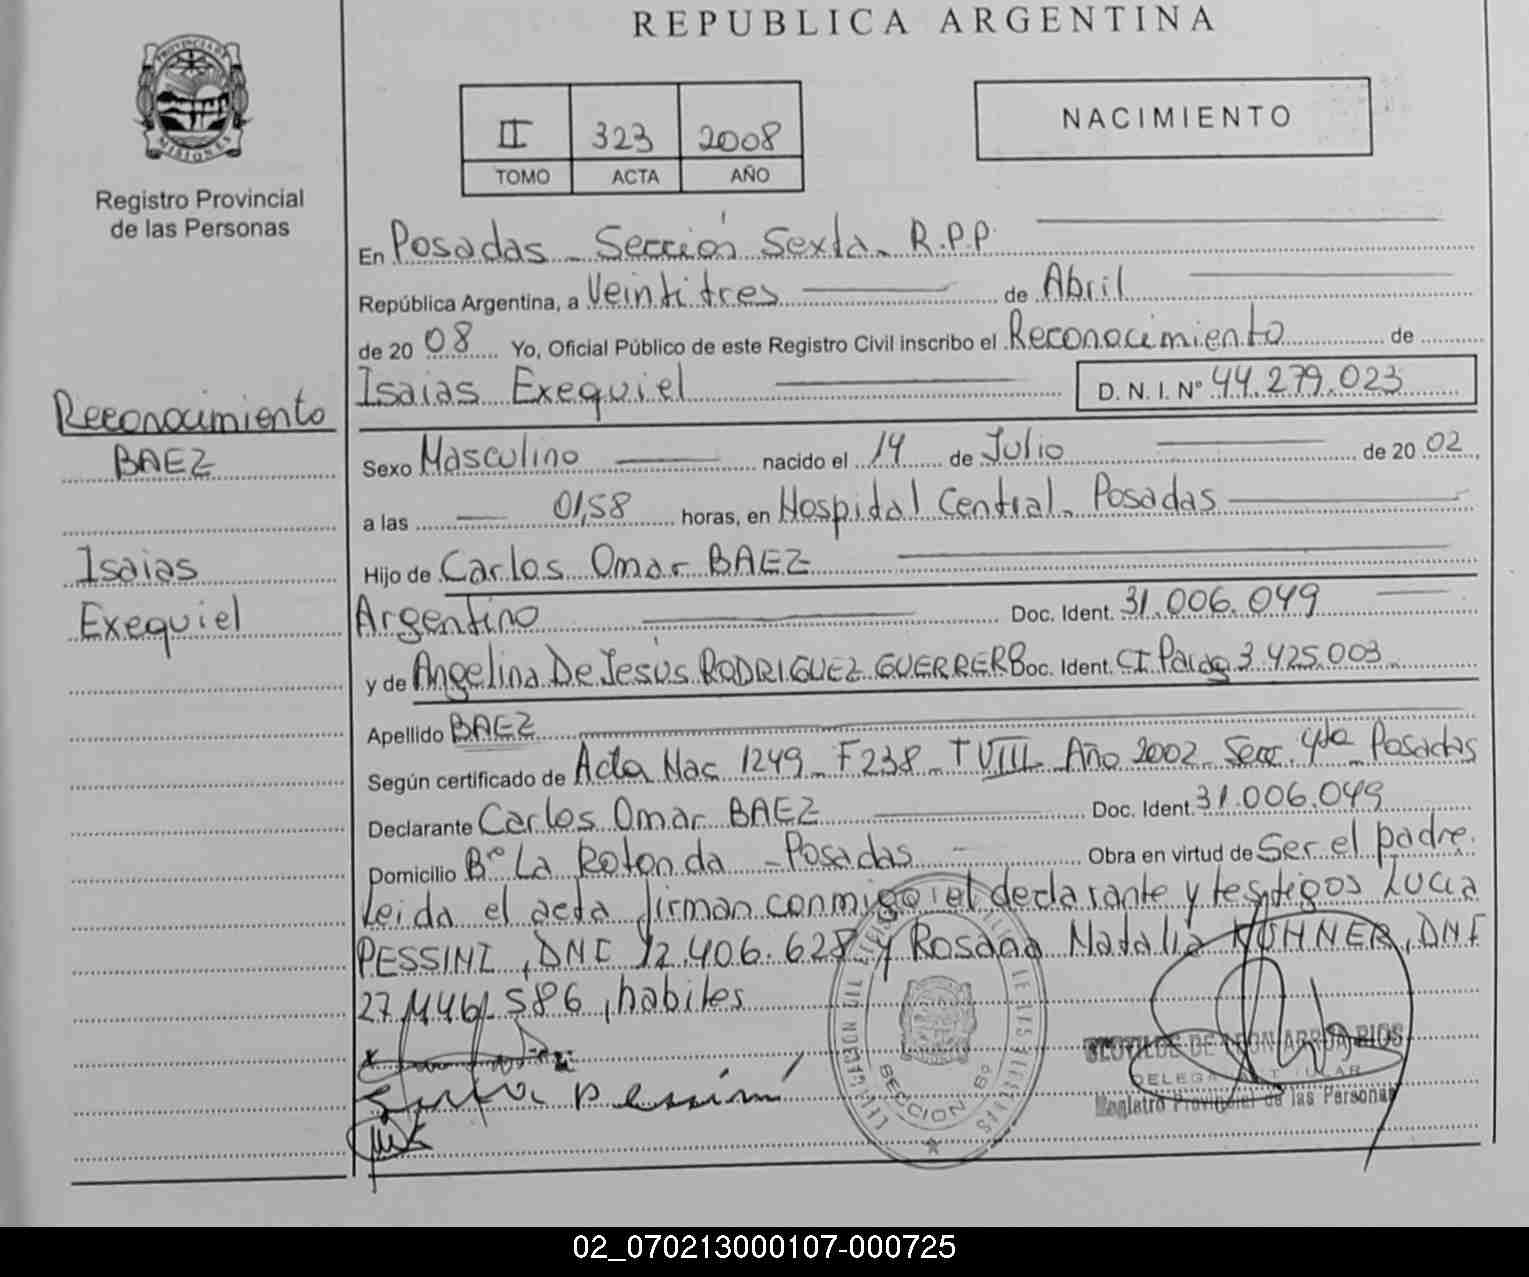 REPUBLICA ARGENTINA
PROVINCIA DE
MISIONES
Registro Provincial
de las Personas
II 323 2008
TOMO ACTA AÑO
NACIMIENTO
En Posadas - Sección Sexta - R.P.P.
República Argentina, a Veintitres de Abril
de 20 08 Yo, Oficial Público de este Registro Civil inscribo el Reconocimiento de
Isaias Exequiel D. N. I. Nº 44.279.023
Reconocimiento
BAEZ
Isaias
Exequiel
Sexo Masculino nacido el 14 de Julio de 20 02
a las 01,58 horas, en Hospital Central - Posadas
Hijo de Carlos Omar BAEZ
Argentino Doc. Ident. 31.006.049
y de Angelina De Jesús RODRIGUEZ GUERRERO Doc. Ident. CI Parag 3.425.003
Apellido BAEZ
Según certificado de Acta Nac 1249 - F238 - T VIII Año 2002 Secc 4ta Posadas
Declarante Carlos Omar BAEZ Doc. Ident. 31.006.049
Domicilio Bº La Rotonda - Posadas Obra en virtud de Ser el padre.
Leida el acta firman conmigo el declarante y testigos Lucia
PESSINI, DNI 12.406.628 y Rosana Natalia KUHNER, DNI
27.446.586, habiles
Pessini
SECCION
DELEGADA TITULAR
Registro Provincial de las Personas
02_070213000107-000725